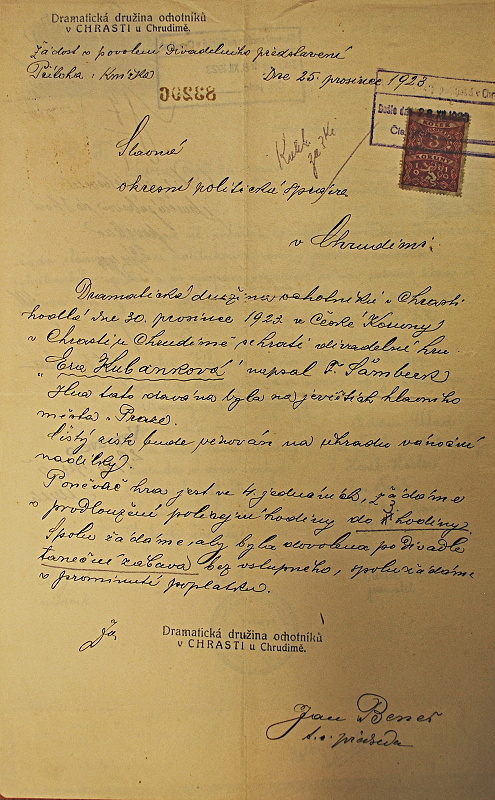 Dramatická družina ochotníků
v CHRASTI u Chrudimě.
Žádost o povolení Divadelního představení
Příloha: Knížka
Dne 25. prosince 1923.
83290
Kolek
za 3 Kč
Slavné
okresní politická správa
v Chrudimi.
Dramatická družina ochotníků v Chrasti
hodlá dne 30. prosince 1923. v České Koruny
v Chrasti u Chrudimě sehráti divadelní hru
"Eva Hubánková" napsal F. Šamberk
Hra tato dávána byla na jevištích hlavního
města Prase.
Čistý zisk bude věnován na úhradu vánoční
nadílky.
Poněvač hra jest ve 4. jednáních, žádáme
o prodloužení policejní hodiny do hodiny
Spolu žádáme, aby byla dovolena po Divadle
taneční zábava bez vstupného, spolu žádáme
o prominutí poplatku.
Za
Dramatická družina ochotníků
v CHRASTI u Chrudimě.
Jan Beneš
t. č. předseda